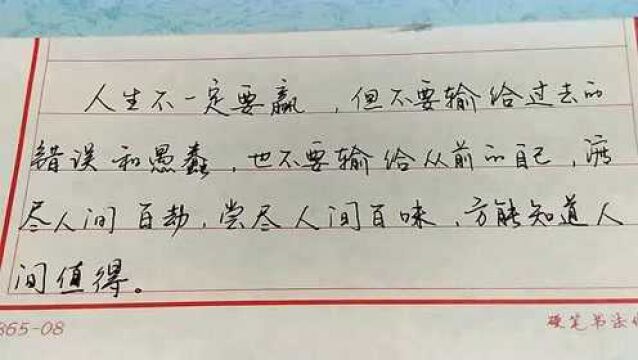 人生不一定要赢，但不要输给过去的
错误和愚蠢，也不要输给从前的自己，渡
尽人间百劫，尝尽人间百味，方能知道人
间值得。
865-08 硬笔书法